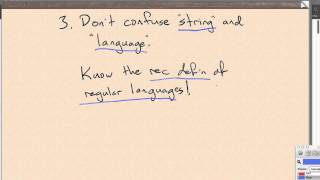 3. Don't confuse "string" and
"language".
Know the rec defin of
regular languages!